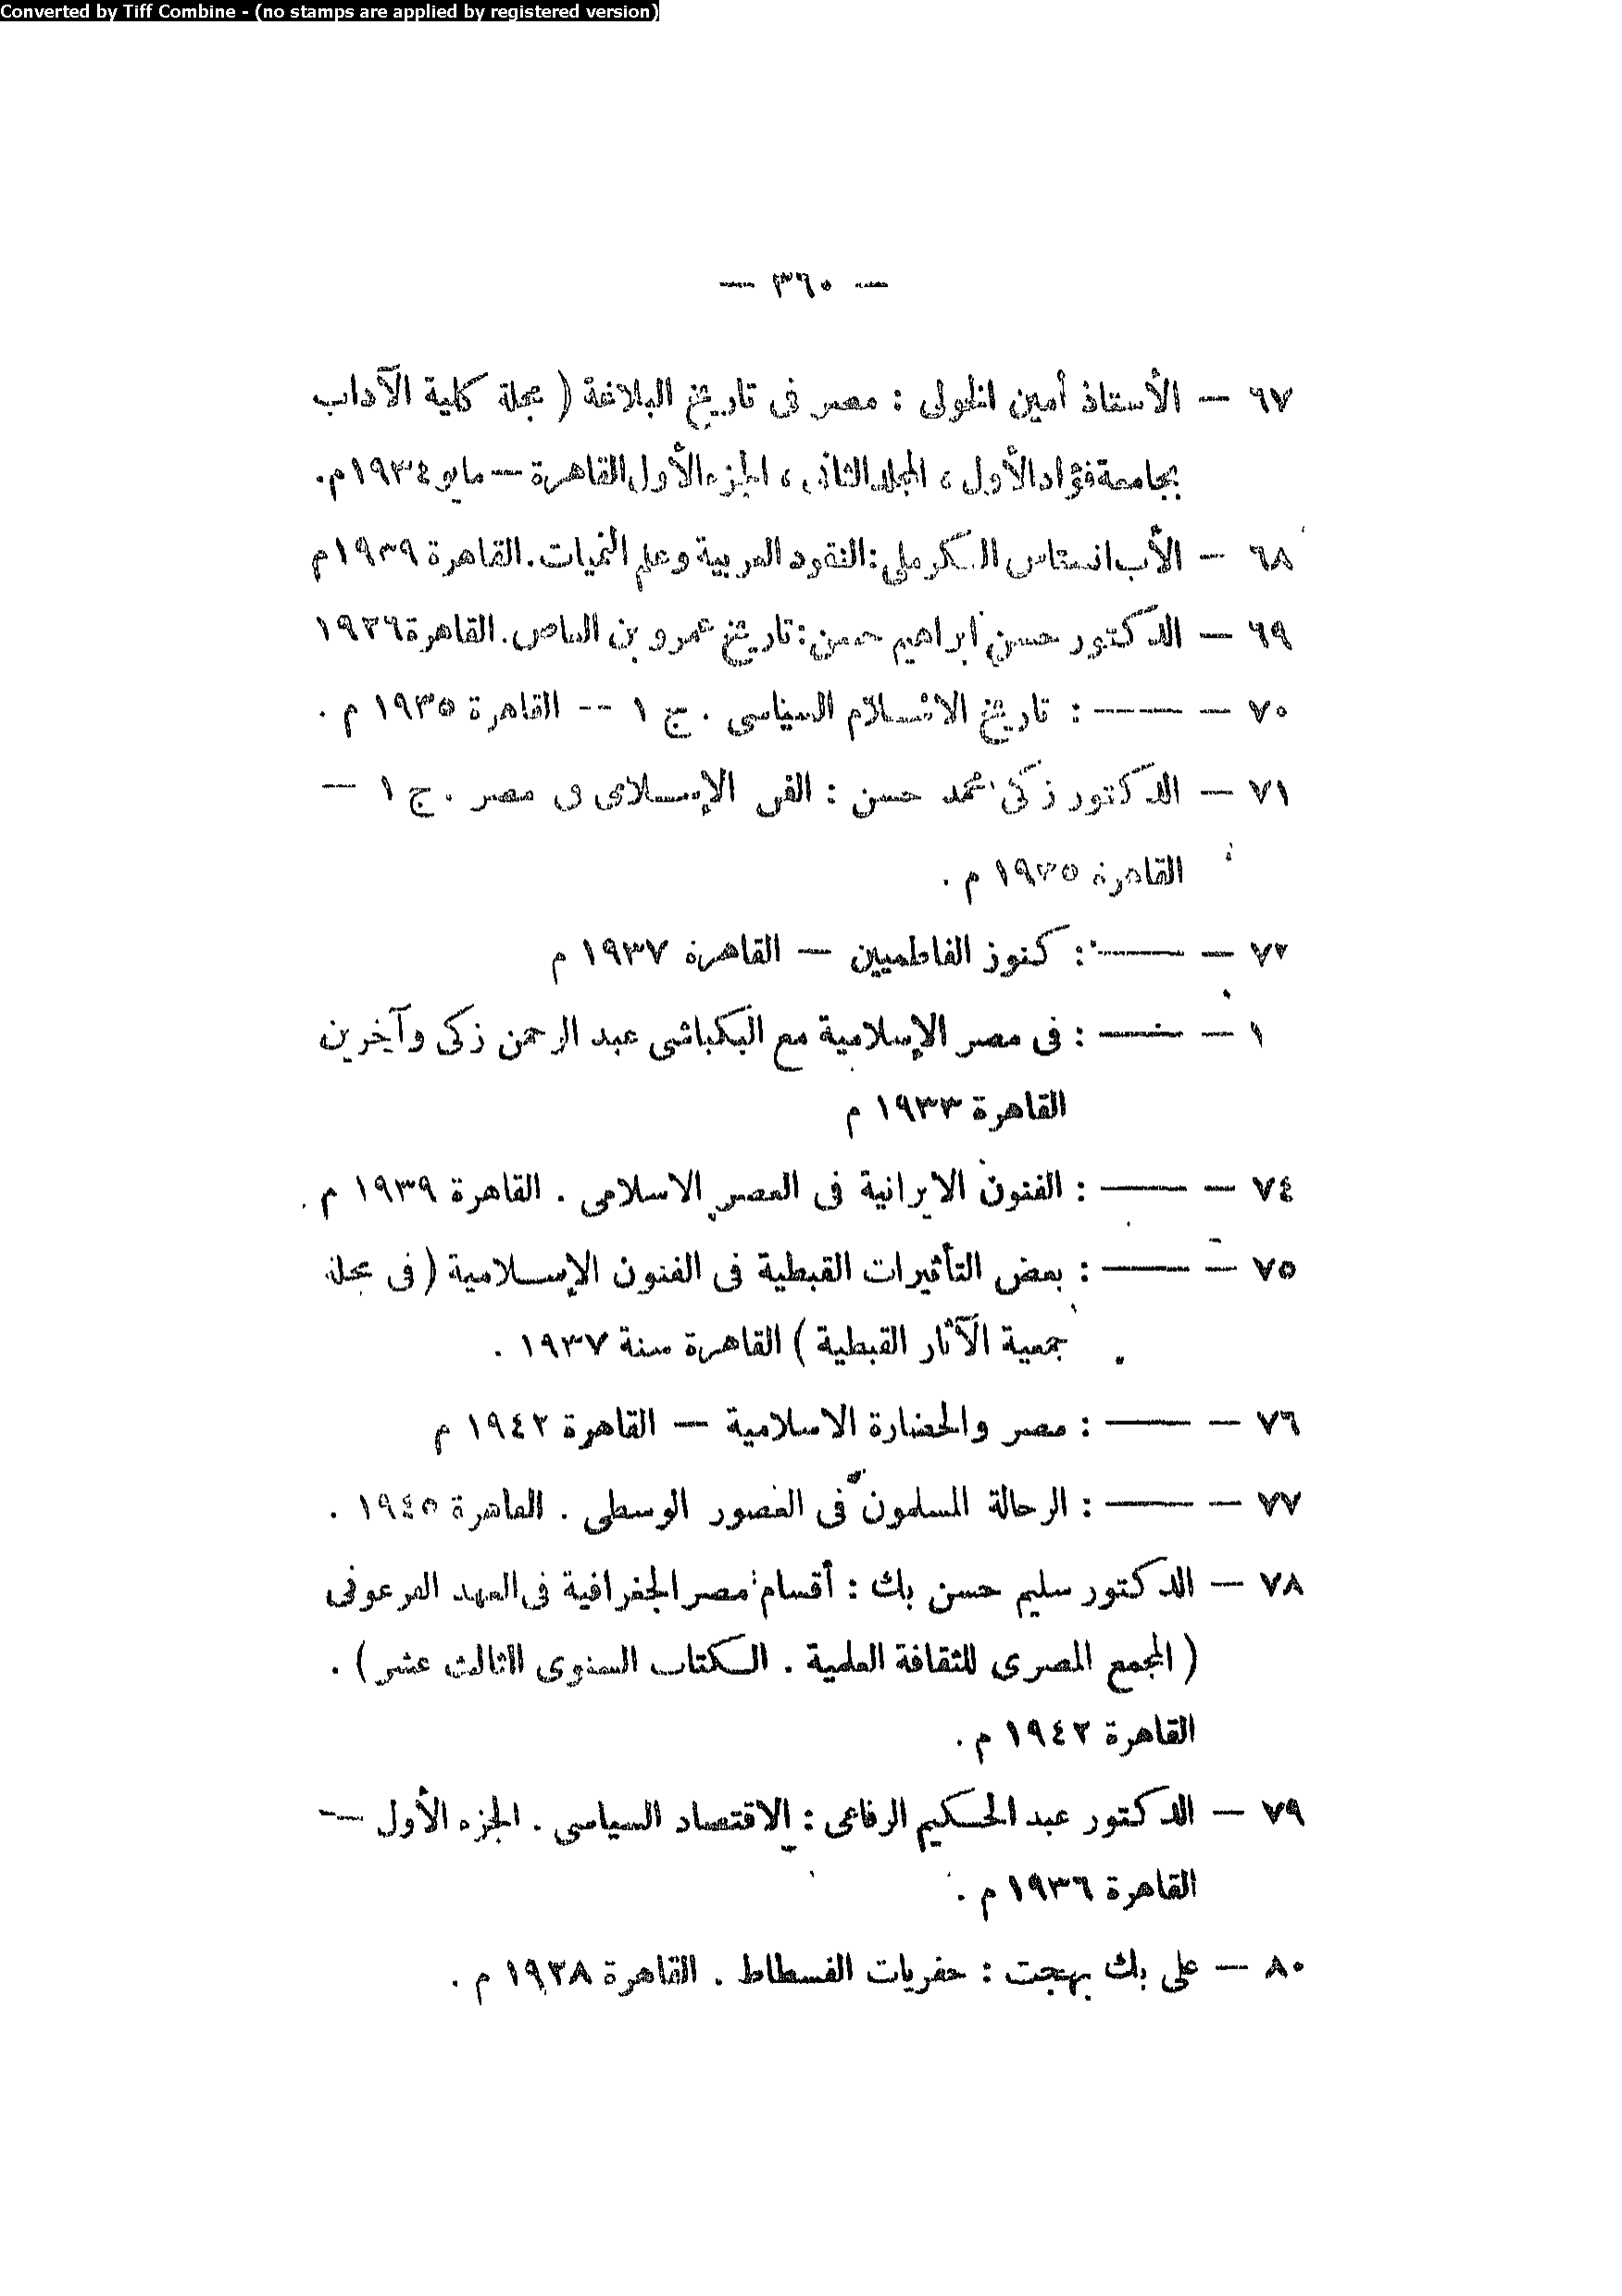 Converted by Tiff Combine - (no stamps are applied by registered version)
— ٣٦٠ —
٦٧ — الأستاذ أمين الخولى : مصر فى تاريخ البلاغة ( مجلة كلية الآداب
بجامعة فؤاد الأول ، المجلد الثانى ، الجزء الأول القاهرة — مايو ١٩٣٤ م .
٦٨ — الأب انستاس الكرملى : النقود العربية وعلم النميات . القاهرة ١٩٣٩ م
٦٩ — الدكتور حسن ابراهيم حسن : تاريخ عمرو بن العاص . القاهرة ١٩٢٦
٧٠ — ——— : تاريخ الاسلام السياسى . ج ١ -- القاهرة ١٩٣٥ م .
٧١ — الدكتور زكى محمد حسن : الفن الإسلامى فى مصر . ج ١ —
القاهرة ١٩٣٥ م .
٧٢ — ——— : كنوز الفاطميين — القاهرة ١٩٣٧ م
١ — ——— : فى مصر الإسلامية مع البكباشى عبد الرحمن زكى وآخرين
القاهرة ١٩٣٣ م
٧٤ — ——— : الفنون الايرانية فى العصر الاسلامى . القاهرة ١٩٣٩ م .
٧٥ — ——— : بعض التأثيرات القبطية فى الفنون الإسلامية ( فى مجلة
جمعية الآثار القبطية ) القاهرة سنة ١٩٣٧ .
٧٦ — ——— : مصر والحضارة الاسلامية — القاهرة ١٩٤٢ م
٧٧ — ——— : الرحالة المسلمون فى العصور الوسطى . القاهرة ١٩٤٥ .
٧٨ — الدكتور سليم حسن بك : أقسام مصر الجغرافية فى العهد الفرعونى
( المجمع المصرى للثقافة العلمية . الكتاب السنوى الثالث عشر ) .
القاهرة ١٩٤٢ م .
٧٩ — الدكتور عبد الحكيم الرفاعى : الاقتصاد السياسى . الجزء الأول —
القاهرة ١٩٣٦ م .
٨٠ — على بك بهجت : حفريات الفسطاط . القاهرة ١٩٢٨ م .